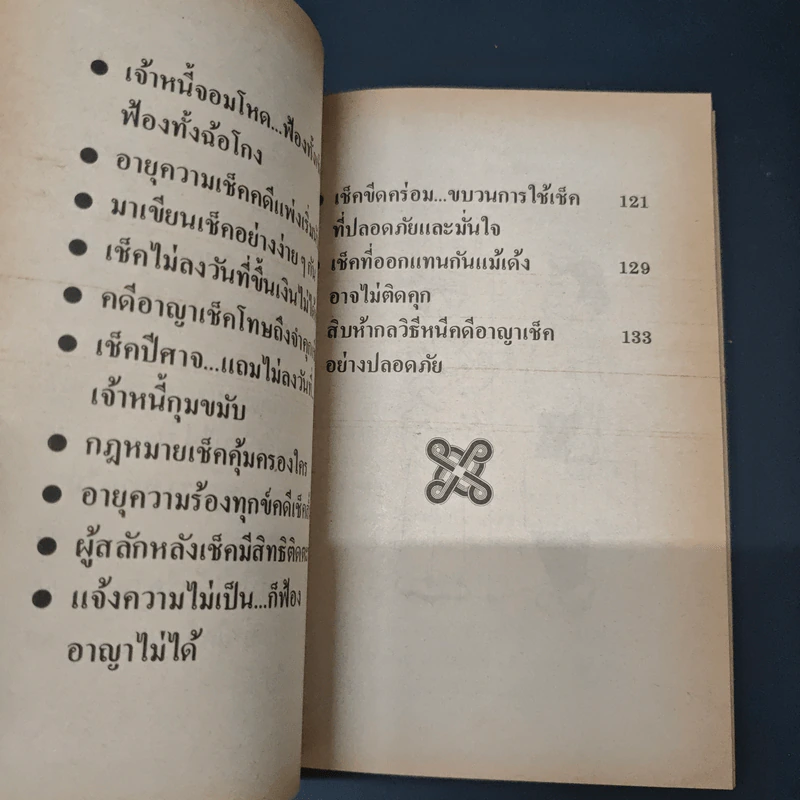 ● เจ้าหนี้จอมโหด...ฟ้องทั้ง
ฟ้องทั้งฉ้อโกง
● อายุความเช็คคดีแพ่งเริ่ม
● มาเขียนเช็คอย่างง่าย ๆ
● เช็คไม่ลงวันที่ขึ้นเงินไม่ได้
● คดีอาญาเช็คโทษถึงจำคุก
● เช็คปีศาจ...แถมไม่ลงวันที่
เจ้าหนี้กุมขมับ
● กฎหมายเช็คคุ้มครองใคร
● อายุความร้องทุกข์คดีเช็ค
● ผู้สลักหลังเช็คมีสิทธิติด
● แจ้งความไม่เป็น...ก็ฟ้อง
อาญาไม่ได้
เช็คขีดคร่อม...ขบวนการใช้เช็ค 121
ที่ปลอดภัยและมั่นใจ
เช็คที่ออกแทนกันแม้เด้ง 129
อาจไม่ติดคุก
สิบห้ากลวิธีหนีคดีอาญาเช็ค 133
อย่างปลอดภัย